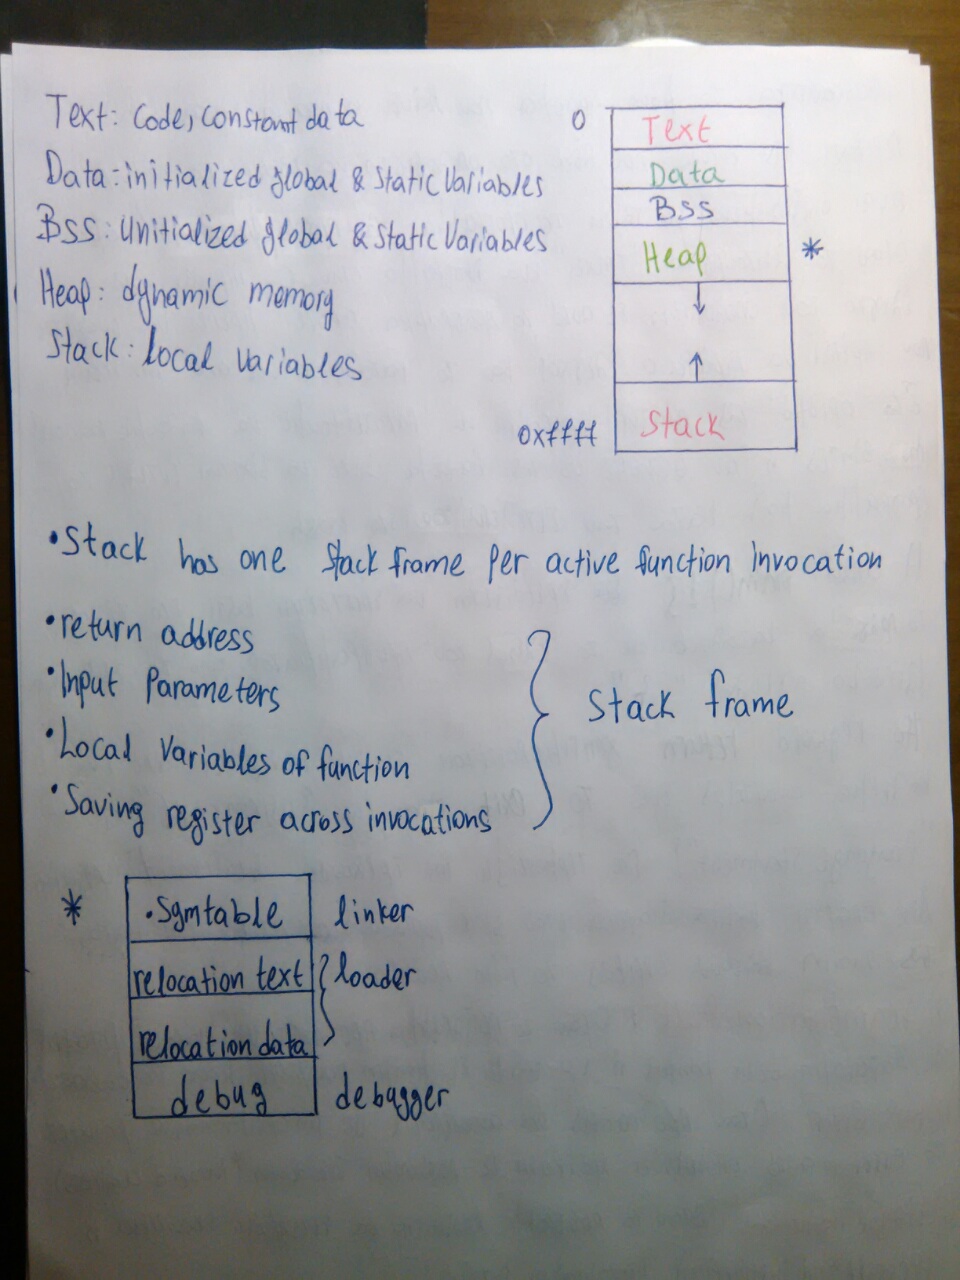 Text: Code, Constant data
Data: initialized global & Static Variables
BSS: Unitialized global & Static Variables
Heap: dynamic memory
Stack: Local Variables
0
Text
Data
BSS
Heap
*
Stack
0xffff
•Stack has one Stack frame Per active function Invocation
•return address
•Input Parameters
•Local Variables of function
•Saving register across invocations
Stack frame
*
.Symtable
linker
relocation text
loader
relocation data
debug
debugger